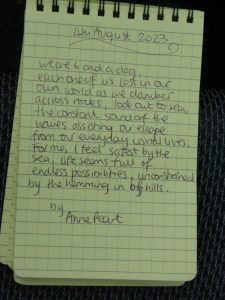 August 2023
and a dog,
each one of us lost in our
own world as we clamber
across rocks, look out to sea,
the constant sound of the
waves assisting our escape
from our everyday usual lives.
For me, I feel safest by the
sea, life seems full of
endless possibilities, unconstrained
by the hemming in of hills.
by
Anne